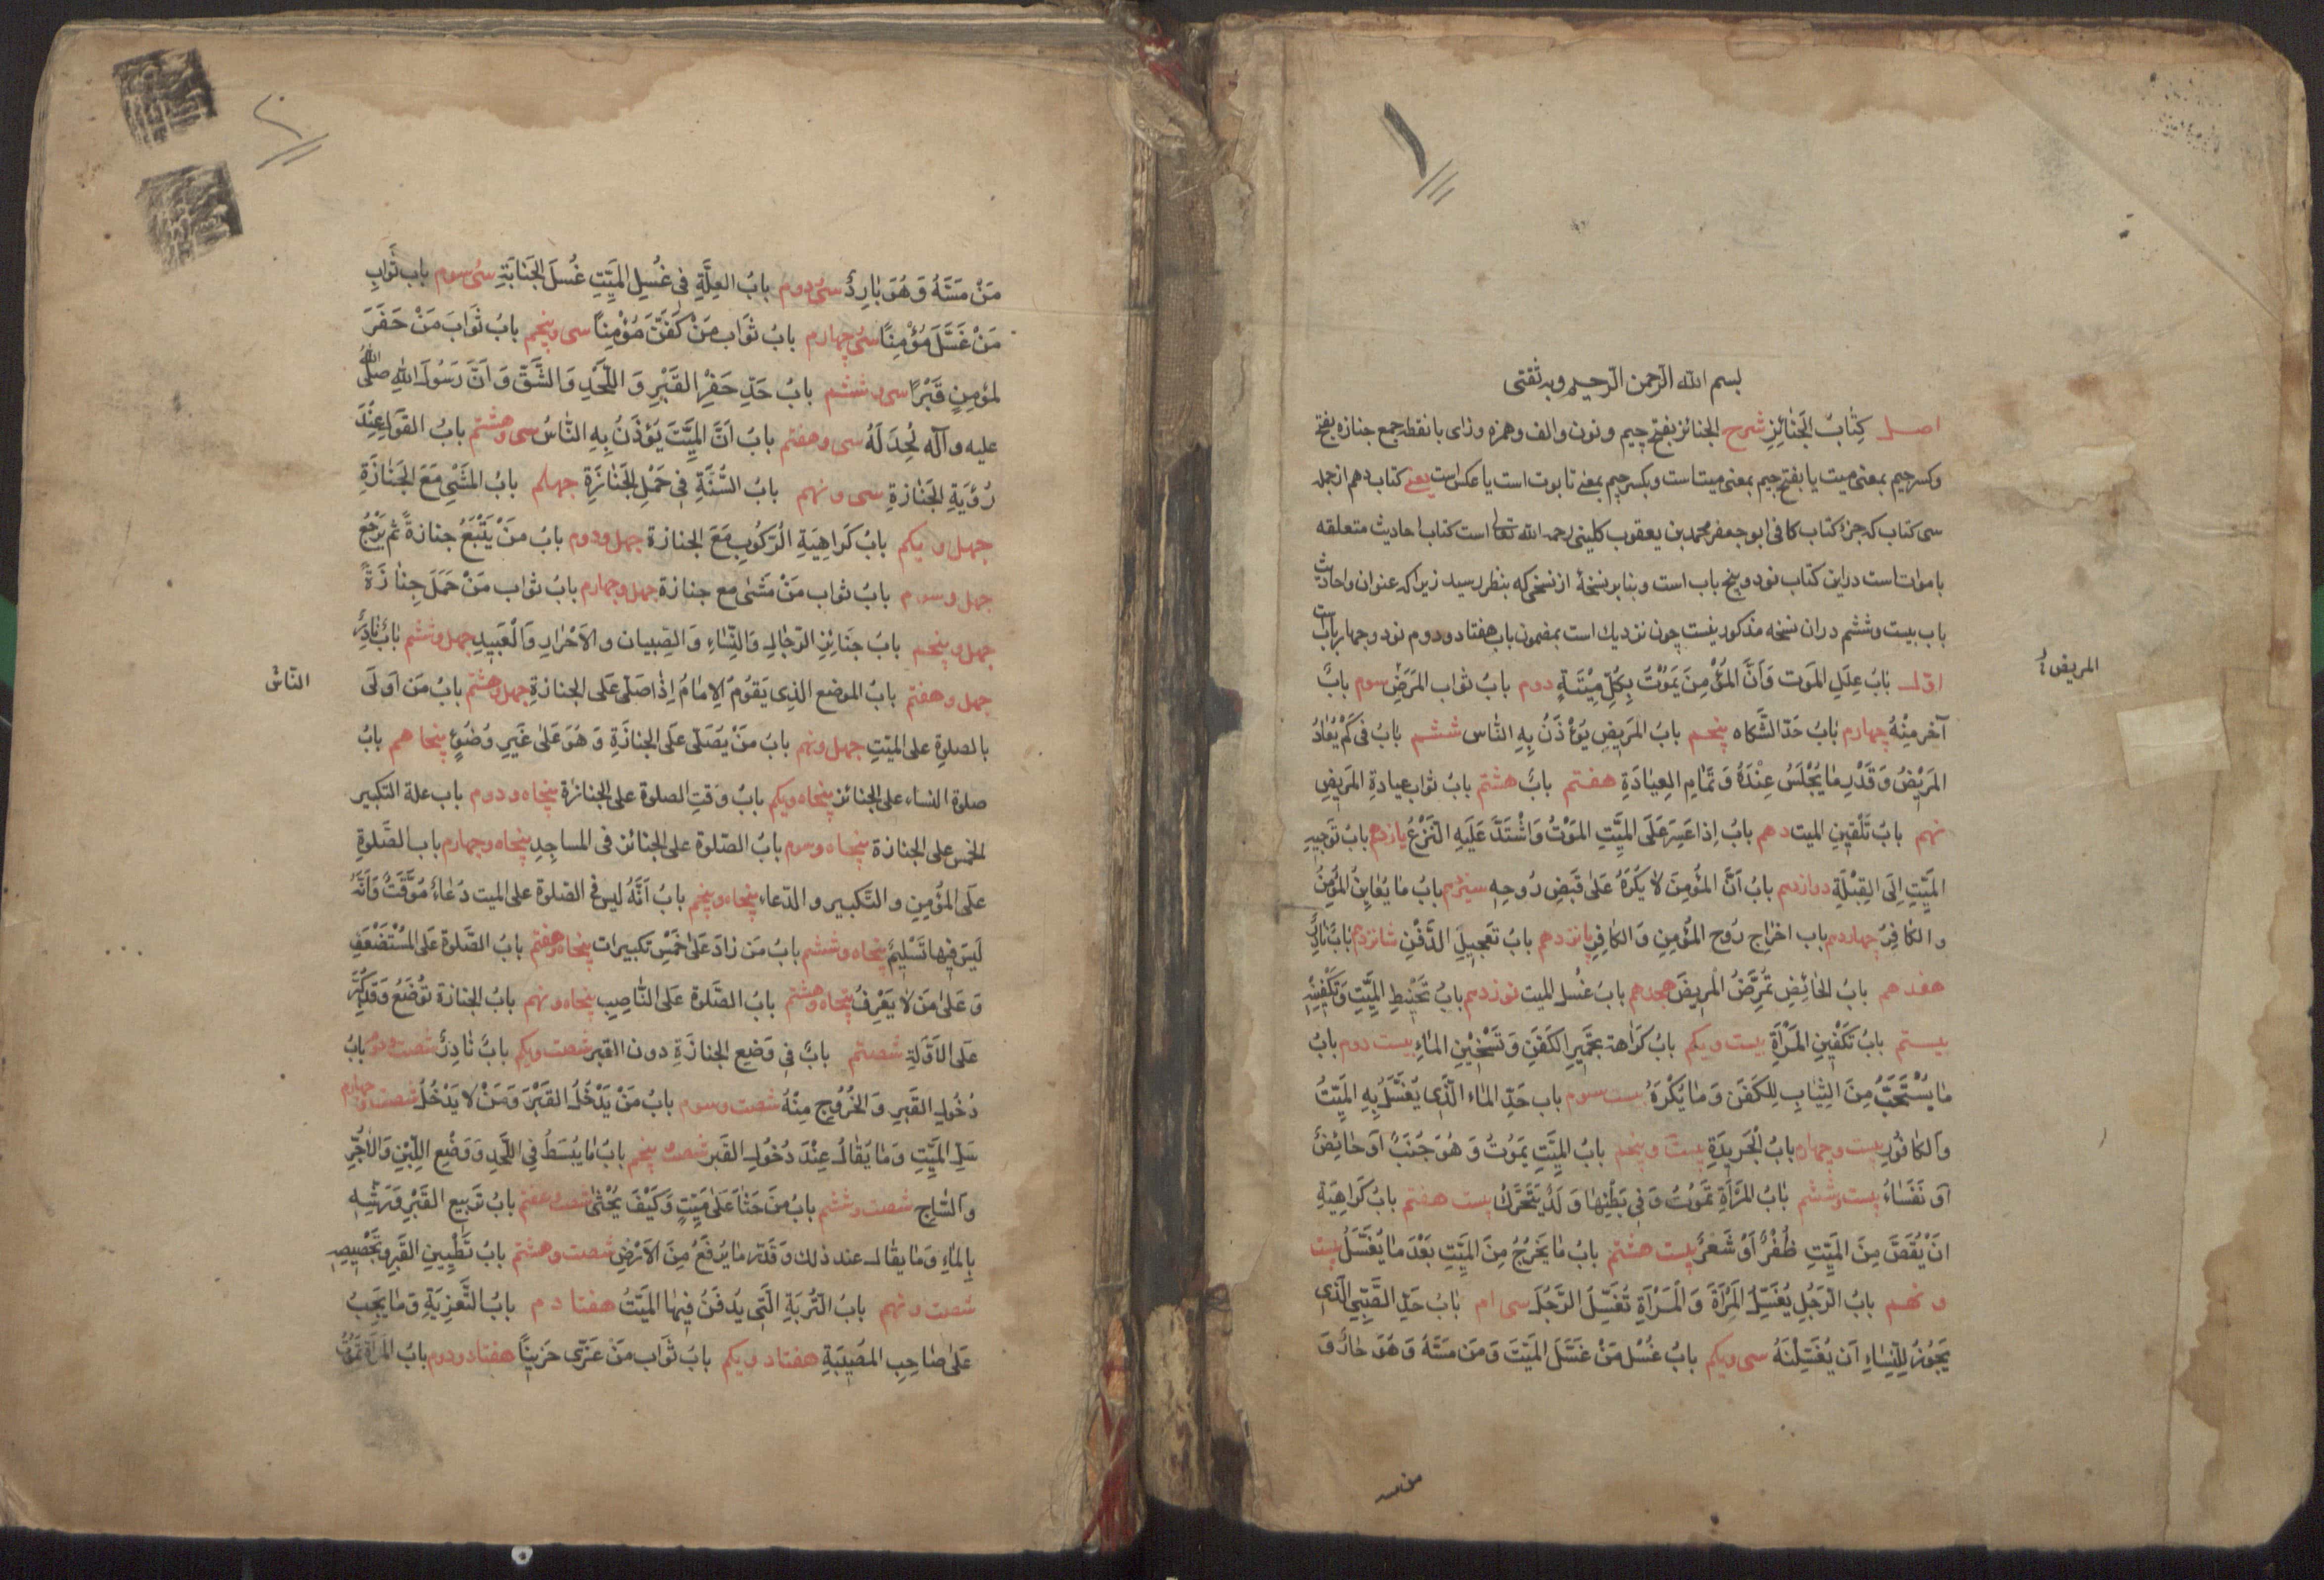 ١
بسم الله الرّحمن الرّحيم وبه ثقتى
اصل كِتابُ الجَنائِزِ شرح الجنائز بفتح جيم ونون والف وهمزه وزاى بانقطه جمع جنازه بفتح
وكسر جيم بمعنى ميت يا بفتح جيم بمعنى ميت است وبكسر جيم بمعنى تابوت است يا عكس است يعنى كتاب دهم از جمله
سى كتاب كه جزء كتاب كافى ابو جعفر محمد بن يعقوب كلينى رحمه الله تعالى است كتاب احاديث متعلقه
باموات است دراين كتاب نود و پنج باب است وبنابر نسخۀ از نسخى كه بنظر رسيد زيرا كه عنوان واحاديث
باب بيست وششم دران نسخه مذكور نيست چون نزديك است بمضمون باب هفتاد ودوم نود وچهار باب است
اوّل بابُ عِلَلِ المَوت وَاَنَّ المُؤْمِنَ يَمَوْتُ بِكُلِّ مِيْتَةٍ دوم بابُ ثواب المَرَضِ سوم بابٌ
المريض
آخر مِنْهُ چهارم بابُ حَدّ الشَّكاه پنجم بابُ المَريضِ يُؤْذَنُ بِهِ النّاس ششم بابُ فى كَمْ يُعادُ
المَرَيْضُ وَقَدْرِ ما يُجْلَسُ عِنْدَهُ وَتَمامِ العِيادَةِ هفتم بابُ هشتم بابُ ثواب عيادةِ المَريضِ
نهم بابُ تَلْقينِ الميت دهم بابُ اِذا عَسِرَ عَلَى المَيِّتِ المَوْتُ وَاشْتَدَّ عَلَيهِ النَّزْعُ يازدهم بابُ تَوجيهِ
المَيِّتِ اِلَى القِبْلَةِ دوازدهم بابُ اَنَّ المُؤمِنَ لا يُكْرَهُ عَلى قَبَضِ رُوحِهِ سيزدهم بابُ ما يُعايِنُ المُؤمِنُ
والكافِرُ چهاردهم باب اخراج رُوح المُؤمِنِ وَالكافِرِ پانزدهم بابُ تَعجيلِ الدَّفْنِ شانزدهم بابٌ نادِرٌ
هفدهم بابُ الحائِضِ تُمرِّضُ المَريضَ هجدهم بابُ غُسل الميت نوزدهم بابُ تَحْنيطِ المَيِّتِ وَتَكْفينِهِ
بيستم بابُ تَكْفينِ المَرْأَةِ بيست ويكم بابُ كَراهة تَجميرِ الكَفَنِ وَتَسْخِيْنِ الماءِ بيست دوم بابُ
ما يُسْتَحَبُّ مِنَ الثِيابِ لِلكَفَنِ وَما يُكْرَهُ بيست سوم باب حَدّ الماء الّذى يُغَسَّلُ بِهِ المَيِّتُ
وَالكافُورِ بيست وچهارم بابُ الْجَريدَةِ بيست وپنجم بابُ المَيِّتِ يَمَوتُ وَهُوَ جُنُبٌ اَو حائِضٌ
اَو نُفَساءُ بيست وششم بابُ المَرأَةِ تَمَوُتُ وَفى بَطْنِها وَلَدٌ يَتَحَرّكُ بيست هفتم بابُ كَراهِيَةِ
اَنْ يُقَصَّ مِنَ المَيِّتِ ظُفُرٌ اَوْ شَعَرٌ بيست هشتم بابُ ما يَخرُجُ مِنَ المَيِّتِ بَعْدَ ما يُغَسَّلُ بيست
ونهم بابُ الرّجُلِ يُغَسِّلُ المَرْأَةَ وَالمَرْأَةِ تُغَسِّلُ الرَّجُلَ سى ام بابُ حَدّ الصَّبِىِّ الّذى
يَجُوزُ لِلنِّساءِ اَن يُغَسِّلْنَهُ سى ويكم بابُ غُسْل مَنْ غَسَّلَ المَيّتَ وَمَن مَسَّهُ وَهُوَ حارٌّ وَ
من مسه
٢
مَنْ مَسَّهُ وَهُوَ بارِدٌ سى ودوم بابُ العِلَّةِ فى غُسلِ المَيِّتِ غُسلَ الجَنابَةِ سى وسوم باب ثَوابِ
مَنْ غَسَّلَ مُؤمِنًا سى چهارم بابُ ثَوابِ مَنْ كَفَّنَ مُؤْمِنًا سى وپنجم بابُ ثَوابِ مَنْ حَفَرَ
لمؤمِنٍ قَبْرًا سى وششم بابُ حَدِّ حَفْرِ القَبْرِ وَاللَّحْدِ وَالشَّقّ وَاَنَّ رَسُولَ اللهِ صلّى الله
عليه وآله لُحِدَ لَهُ سى وهفتم بابُ اَنَّ المَيِّتَ يُؤذَنُ بِهِ النّاسُ سى وهشتم بابُ القَولِ عِنْدَ
رُؤيَةِ الجَنازةِ سى ونهم بابُ السُّنَّةِ فى حَمْلِ الجَنازَةِ چهلم بابُ المَشْىِ مَعَ الجَنازَةِ
چهل ويكم بابُ كَراهِيَةِ الرُّكُوبِ مَعَ الجنازة چهل ودوم بابُ مَنْ يَتْبَعُ جنازةً ثم يَرْجِعُ
چهل وسوم بابُ ثواب مَنْ مَشى مع جنازة چهل وچهارم بابُ ثواب مَنْ حَمَلَ جِنازَةً
چهل وپنجم بابُ جَنائِزِ الرّجالِ وَالنِّساءِ وَالصِبيان والاَحْرارِ وَالْعَبيدِ چهل وششم بابٌ نادِرٌ
چهل وهفتم بابُ الموضع الّذى يَقوُمُ الاِمامُ اِذا صَلّى عَلى الجنازةِ چهل وهشتم بابُ مَن اَولَى
النّاس
بالصلوةِ على الميّتِ چهل ونهم بابُ مَنْ يُصَلّى عَلَى الجنازَةِ وَهُوَ عَلى غَيرِ وُضُوءٍ پنجاهم بابُ
صلوة النساء على الجنائز پنجاه ويكم بابُ وَقتِ الصلوة على الجنازة پنجاه ودوم باب علة التكبير
الخمس على الجنازة پنجاه وسوم بابُ الصّلوة على الجنائز فى المساجِدِ پنجاه وچهارم باب الصَّلوةِ
عَلَى المُؤمِنِ والتَّكبير والدّعاء پنجاه وپنجم بابُ اَنَّهُ ليس فى الصّلوة على الميت دُعاءٌ مُوَقَّتٌ وَاَنَّهُ
لَيسَ فيها تَسْلِيمٌ پنجاه وششم بابُ مَن زادَ عَلى خَمْسِ تكبيرات پنجاه وهفتم بابُ الصَّلوة عَلى المُسْتَضْعَفِ
وَعَلى مَن لا يَعْرِفُ پنجاه وهشتم بابُ الصَّلوة عَلَى النّاصِبِ پنجاه ونهم بابُ الجنازة تُوضَعُ وَقَد كُبِّرَ
عَلَى الاَوَّلةِ شصتم بابُ فى وَضعِ الجنازَةِ دون القبر شصت ويكم بابٌ نادِرٌ شصت ودوم بابُ
دُخُولِ القبرِ وَالخُرُوجِ مِنْهُ شصت وسوم بابُ مَنْ يَدْخُلُ القَبْرَ وَمَنْ لا يَدْخُلُ شصت وچهارم
سَلِّ المَيِّتِ وَما يُقالُ عِنْدَ دُخُولِ القَبر شصت پنجم بابُ ما يُبسَطُ فى اللَّحدِ وَوَضْعِ اللَّبْنِ وَالآجُرِّ
وَالسّاجِ شصت وششم بابُ مَن حَثا عَلى مَيّتٍ وَكَيْفَ يُحْثى شصت وهفتم بابُ تَربيع القَبْرِ وَرَشّهِ
بِالماءِ وَما يقال عند ذلك وَقَدر ما يُرفَعُ مِنَ الاَرْضِ شصت وهشتم بابُ تَطْيينِ القَبرِ وَتَجْصيصِهِ
شصت ونهم بابُ التُّربَةِ الّتى يُدفَنُ فيها المَيّتُ هفتادم بابُ التَّعزِيَةِ وَما يَجِبُ
عَلى صاحِبِ المصُيبَةِ هفتاد ويكم بابُ ثَوابِ مَنْ عَزّى حَزينًا هفتاد ودوم بابُ المَرْأَة تَمُوتُ